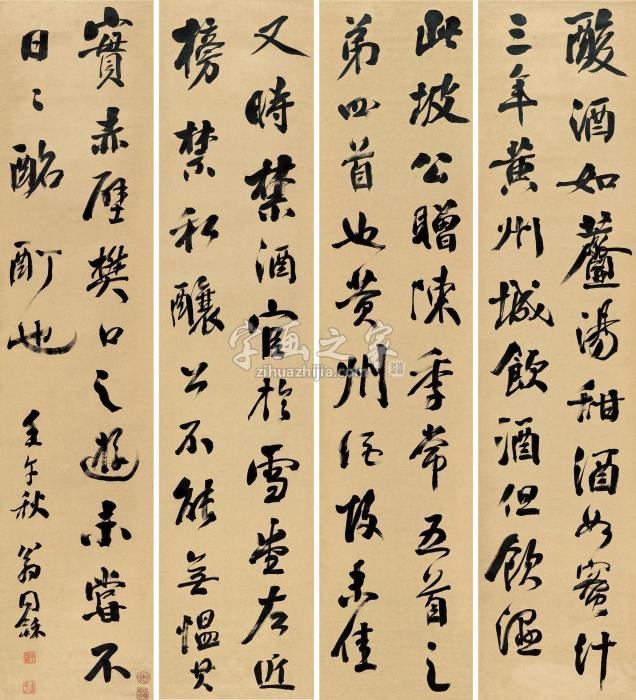 酸酒如虀湯甜酒如蜜汁
三年黄州城飲酒但飲濕
此坡公贈陳季常五首之
弟四首也黄州酒故未佳
又時禁酒官於雪堂左近
榜禁私釀公不能無慍其
實赤壁樊口之遊未嘗不
日〻酩酊也
壬午秋 翁同龢
字画之家
zihuazhijia.com